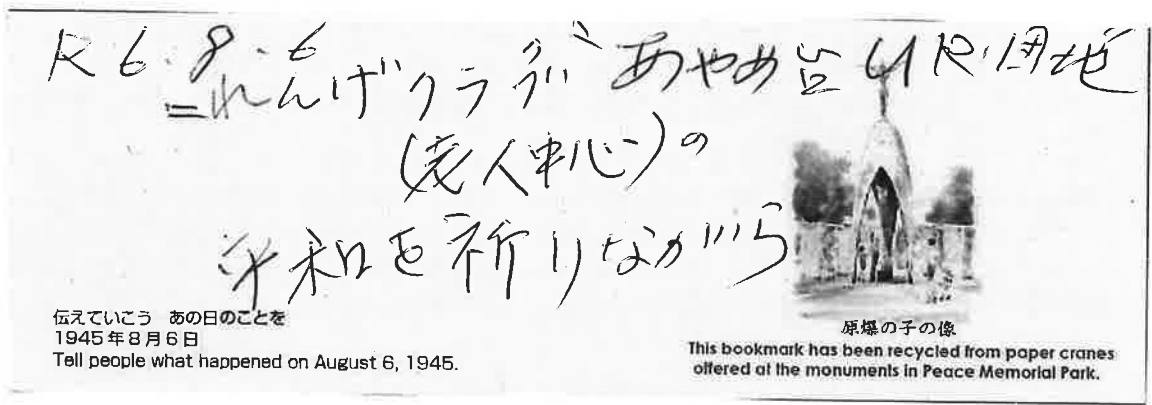 R6.8.6
れんげクラブ あやめ台UR団地
(老人中心)の
平和を祈りながら
伝えていこう あの日のことを
1945年8月6日
Tell people what happened on August 6, 1945.
原爆の子の像
This bookmark has been recycled from paper cranes
offered at the monuments in Peace Memorial Park.